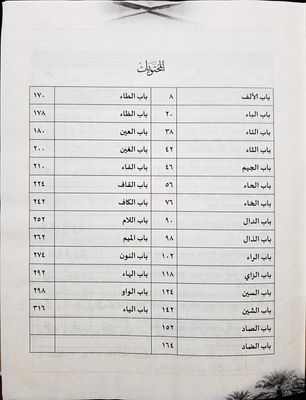 المحتويات
باب الألف ٨ باب الطاء ١٧٠
باب الباء ٢٠ باب الظاء ١٧٨
باب التاء ٣٨ باب العين ١٨٠
باب الثاء ٤٢ باب الغين ٢٠٠
باب الجيم ٤٦ باب الفاء ٢١٠
باب الحاء ٥٦ باب القاف ٢٢٤
باب الخاء ٧٦ باب الكاف ٢٤٢
باب الدال ٩٠ باب اللام ٢٥٢
باب الذال ٩٨ باب الميم ٢٦٢
باب الراء ١٠٢ باب النون ٢٧٤
باب الزاي ١١٨ باب الهاء ٢٩٢
باب السين ١٢٤ باب الواو ٢٩٨
باب الشين ١٤٢ باب الياء ٣١٦
باب الصاد ١٥٢
باب الضاد ١٦٤